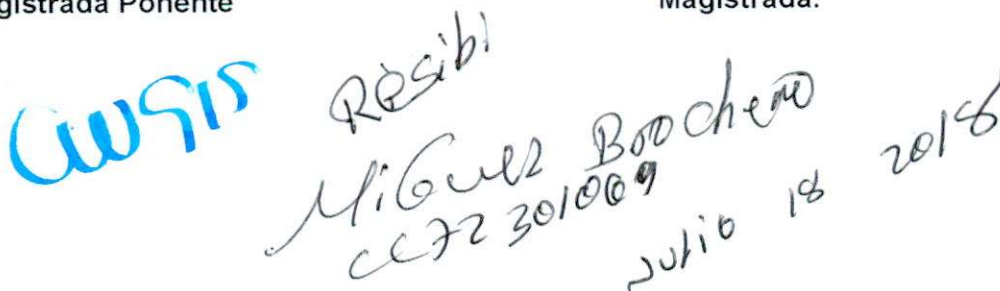 gistrada Ponente
Magistrada.
Resibi
Miguel Borochero
CC 72 301009
Julio 18 2018